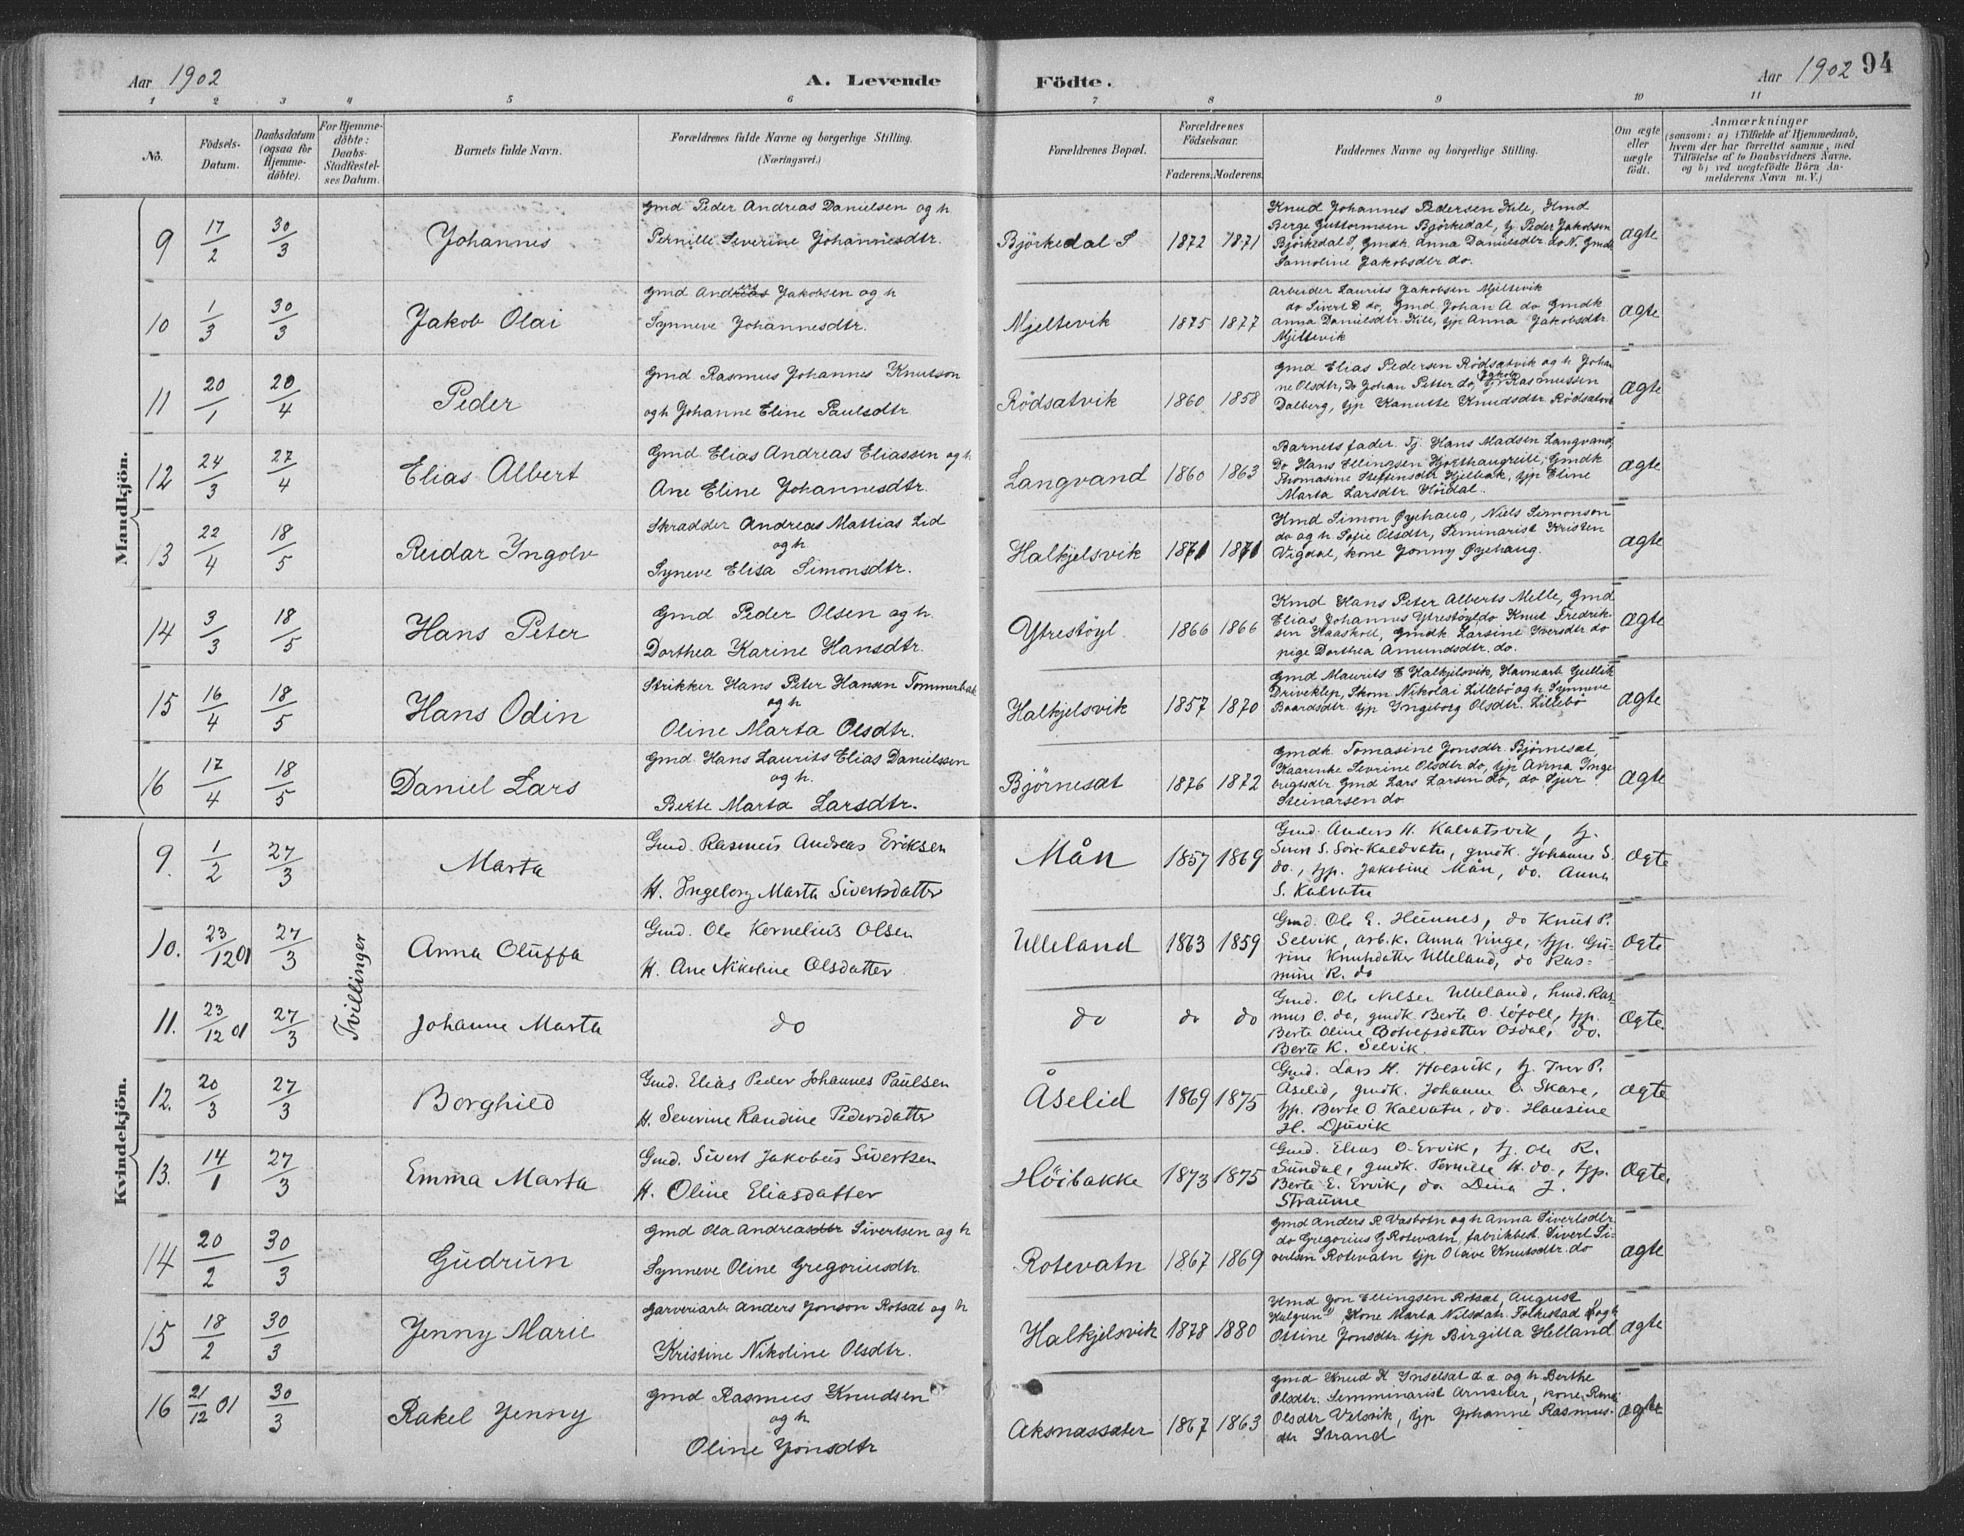 Aar 1902
A. Levende
Födte.
Aar 1902 94
1 2 3 4 5 6 7 8 9 10 11
No.
Födsels-
Datum.
Daabsdatum
(ogsaa for
Hjemme-
döbte).
For Hjemme-
döbte:
Daabs-
Stadfæstel-
ses Datum.
Barnets fulde Navn.
Forældrenes fulde Navne og borgerlige Stilling.
(Næringsvei.)
Forældrenes Bopæl.
Forældrenes
Födselsaar.
Faderens. Moderens.
Faddernes Navne og borgerlige Stilling.
Om ægte
eller
uægte
födt.
Anmærkninger
(saasom: a) i Tilfælde af Hjemmedaab,
hvem der har forrettet samme, med
Tilföielse af to Daabsvidners Navne,
og b) ved uægtefödte Börn An-
melderens Navn m. V.)
Mandkjön.
9 17/2 30/3 Johannes
Gmd Peder Andreas Danielsen og h
Pernille Severine Johannesdtr.
Bjørkedal S 1872 1871
Knud Johannes Pedersen Kile, Kmd
Berge Guttormsen Bjørkedal, Gj Peder Jakobsen
Bjørkedal S, Gmdk. Anna Danielsdtr do N. Gmdk
Samoline Jakobsdtr do.
ægte
10 1/3 30/3 Jakob Olai
Gmd Andreas Jakobsen og h
Synneve Johannesdtr.
Mjeltevik 1875 1877
Arbeider Laurits Jakobsen Mjeltevik
do Sivert D do, Gmd Johan A do Gmdk
Anna Danielsdtr Kile, tjp Anna Jakobsdtr
Mjeltevik
ægte
11 20/1 20/4 Peder
Gmd Rasmus Johannes Knutson
og h Johanne Eline Paulsdtr
Rödsætvik 1860 1858
Gmd Elias Pedersen Rödsætvik og h Johan
ne Olsdtr, Do Johan Petter do, Gj Jakob Rasmussen
Dalberg, tjp Kanutte Knudsdtr Rödsætvik
ægte
12 24/3 27/4 Elias Albert
Gmd Elias Andreas Eliassen og h
Ane Eline Johannesdtr.
Langvand 1860 1863
Barnets fader. Tj. Hans Madsen Langvand
Do Hans Ellingsen Hjorthaugreite, Gmdk
Thomasine Steffensdtr Hjelbak, tjp Eline
Marta Larsdtr Höidal.
ægte
13 22/4 18/5 Reidar Ingolv
Skrædder Andreas Mattias Lid
og h
Syneve Elisa Simonsdtr.
Halkjelsvik 1871 1871
Kmd Simon Øyehaug, Niels Simonson
do og h Sofie Olsdtr, Seminarist Kristen
Vigdal, kone Jonny Øyehaug.
ægte
14 3/3 18/5 Hans Peter
Gmd Peder Olsen og h
Dorthea Karine Hansdtr.
Ytrestöyl 1866 1866
Kmd Hans Peter Alberts Melle, Gmd
Elias Johannes Ytrestöyl do Knut Fredrik-
sen Haaskold, Gmdk Larsine Iversdtr do
pige Dorthea Amundsdtr. do.
ægte
15 16/4 18/5 Hans Odin
Strikker Hans Peter Hansen Tommerbak
og h
Oline Marta Olsdtr.
Halkjelsvik 1857 1870
Gmd Maurits E Halkjelsvik, Havnearb Gullik
Driveklep, Skom Nikolai Lillebö og h Synneve
Baardsdtr tjp Ingeborg Olsdtr. Lillebö
ægte
16 17/4 18/5 Daniel Lars
Gmd Hans Laurits Elias Danielssen
og h.
Berte Marta Larsdtr.
Björnesæt 1876 1872
Gmdk. Tomasine Jonsdtr. Björnesæt,
Kaarenke Sevrine Olsdtr do, tjp Anna Inge-
brigtsdtr. Gmd Lars Larsen do, do Sjur
Steinarsen do
ægte
Kvindekjön.
9. 1/2 27/3 Marta
Gmd. Rasmus Andreas Eriksen
H. Ingeborg Marta Sivertsdatter
Mån 1857 1869
Gmd. Anders H. Kalvatsvik, tj.
Sivert S. Söre-Kaldvatn, gmdk. Johanne S.
do., tjp. Jakobine Mån, do. Anna
S. Kalvatn
ægte
10. 23/12 01 27/3 Anna Oluffa
Tvillinger
Gmd. Ole Kornelius Olsen
H. Ane Nikoline Olsdatter
Ulleland 1863 1859
Gmd. Ole E. Hunnes, do Knut P.
Selvik, arb.k. Anna Vinge, tjp. Gu-
rine Knutsdatter Ulleland, do Ras-
mine R. do
ægte
11. 23/12 01 27/3 Johanne Marta
do
do do do
Gmd. Ole Nilsen Ulleland, Gmd. Ras-
mus O. do, gmdk Berte O. Löfoll, tjp.
Berte Oline Botolfsdatter Osdal, do.
Berte K. Selvik.
ægte
12. 20/3 27/3 Borghild
Gmd. Elias Peder Johannes Paulsen
H. Severine Randine Pedersdatter
Åselid 1869 1875
Gmd. Lars H. Holsvik, tj. Iver P.
Åselid, gmdk. Johanne O. Skare,
tjp. Berte O. Kalvatn, do. Hansine
H. Djuvik
ægte
13. 14/1 27/3 Emma Marta
Gmd. Sivert Jakobus Sivertsen
H. Oline Eliasdatter
Höibakke 1873 1875
Gmd. Elias O. Ervik, tj. Ole R.
Sundal, gmdk. Pernille H. do, tjp.
Berte E. Ervik, do Dina J.
Straume
ægte.
14 20/2 30/3 Gudrun
Gmd Ola Andreas Sivertsen og h
Synneve Oline Gregoriusdtr.
Rotevatn 1867 1869
Gmd Anders R Vasbotn og h Anna Sivertsdtr
do Gregorius G Rotevatn, fabrikbest. Sivert Si-
vertsen Rotevatn tjp Olave Knutsdtr. do
ægte
15 18/2 30/3 Jenny Marie
Garveriarb. Anders Jonson Rotsæt og h
Kristine Nikoline Olsdtr.
Halkjelsvik 1878 1880
Kmd Jon Ellingsen Rotsæt, August
Kone Marta Nilsdatr. Folkestad og h
Ottine Jonsdtr tjp Birgitta Helland
ægte
16 21/12 01 30/3 Rakel Jenny
Gmd Rasmus Knudsen
og h
Oline Jonsdtr
Aksnæssæter 1867 1863
Gmd Knud K Ynselsæt d æ og h Berthe
Olsdtr. Semminarist Arnseter, kone Rina
Olsdtr Velsvik, tjp Johanne Rasmus-
dtr Strand
ægte